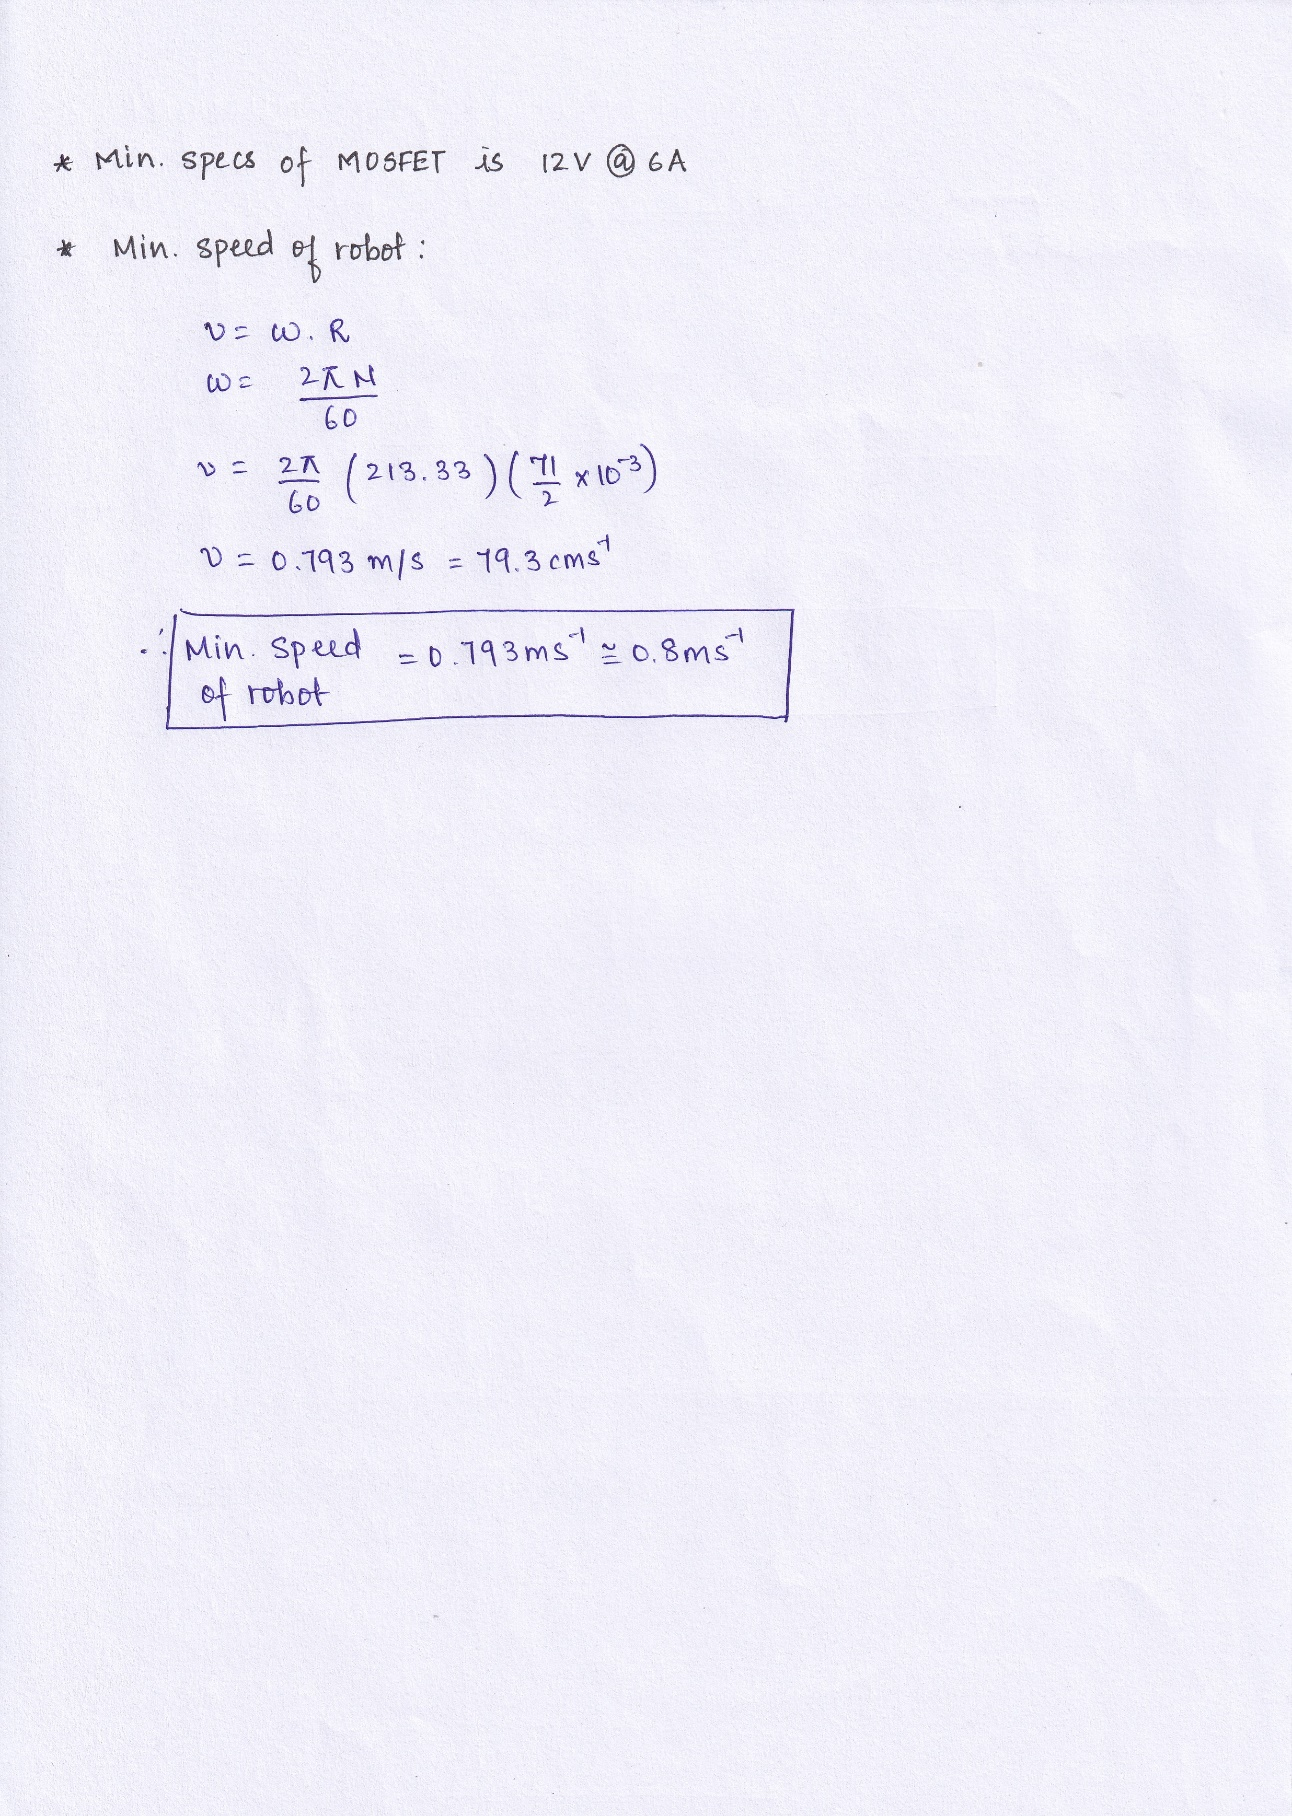 * Min. specs of MOSFET is 12V @ 6A
* Min. speed of robot :
v = ω. R
ω = 2πN / 60
v = 2π / 60 (213.33) (71 / 2 × 10⁻³)
v = 0.793 m/s = 79.3 cms⁻¹
∴ Min. speed = 0.793ms⁻¹ ≅ 0.8ms⁻¹
of robot